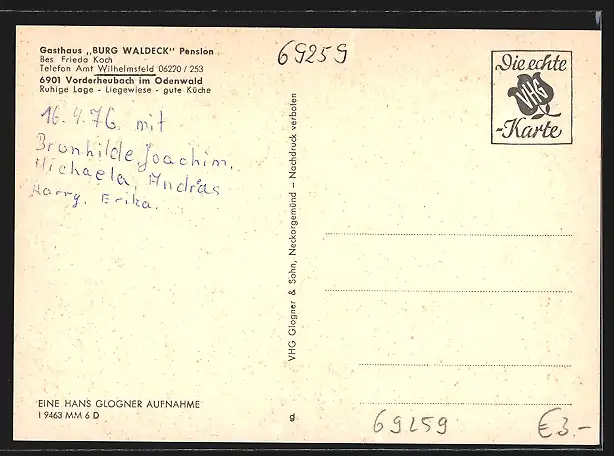 Gasthaus „BURG WALDECK" Pension
Bes. Frieda Koch
Telefon Amt Wilhelmsfeld 06220 / 253
6901 Vorderheubach im Odenwald
Ruhige Lage - Liegewiese - gute Küche
69259
Die echte
VHG
-Karte
16.4.76. mit
Brunhilde, Joachim,
Michaela, Andräs
Harry, Erika.
VHG Glogner & Sohn, Neckargemünd – Nachdruck verboten
EINE HANS GLOGNER AUFNAHME
I 9463 MM 6 D
g
69259
€3.-